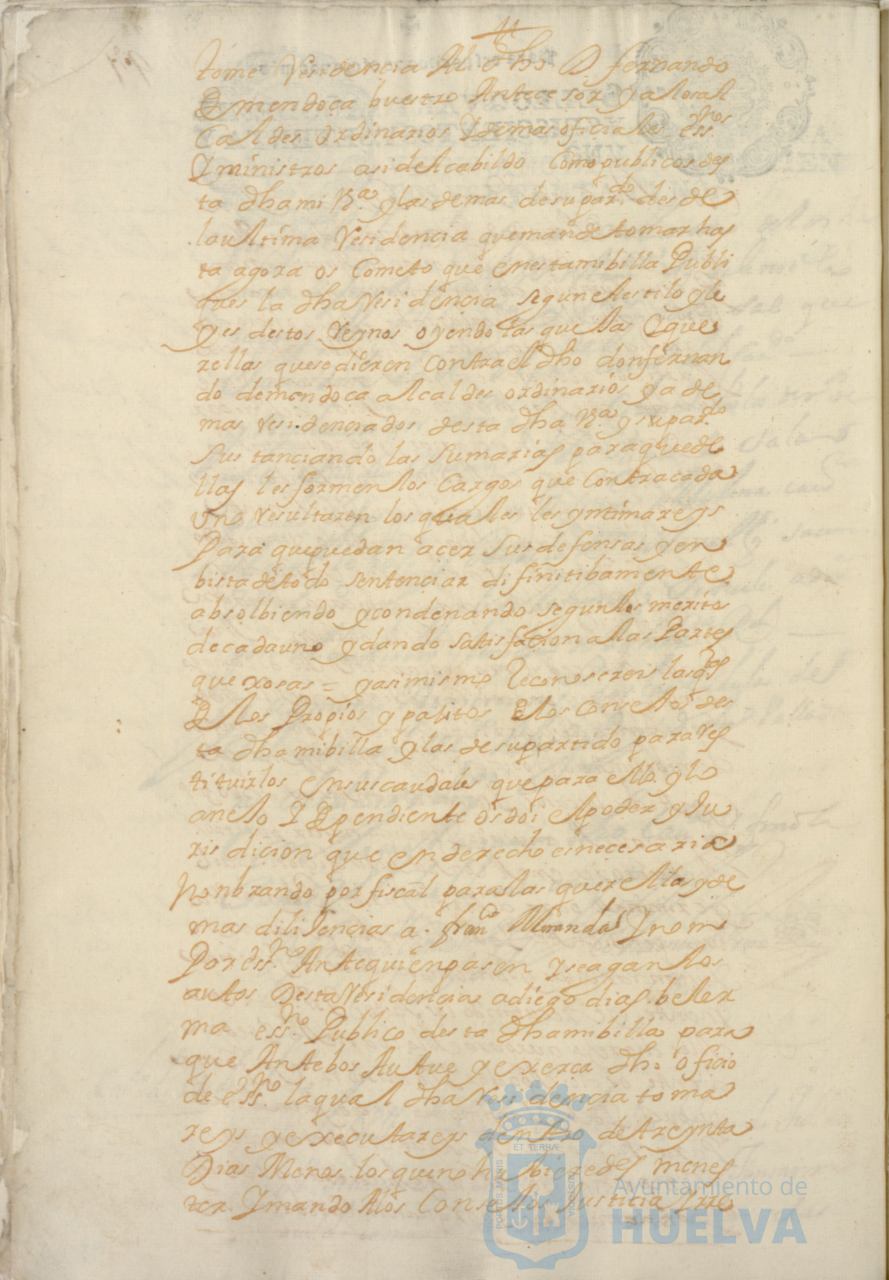 tome Residencia Al dho D. fernando
de mendoça buestro Antecesor y a los al
Caldes ordinarios Y demas oficiales essnos
Y ministros asi de Cabildo Como publicos des
ta dha mi Va y las demas de su pardo des de
la ultima Residencia que mande tomar has
ta agora os Cometo que en esta mi billa Publi
queis la dha Residencia segun el estilo y le
yes destos Reynos oyendo las quejas Y que
rellas que se dieren contra el dho don fernan
do de mendoca alcaldes ordinarios y a de
mas Residenciados desta dha Va y su pardo
sustanciando las sumarias para que de
llas les formen los Cargos que Contra cada
Uno Resultaren los quales les yntimareys
Para que puedan acer sus defensas y en
bista de todo sentenciar difinitibamente
absolbiendo y condenando segun los meritos
de cada uno y dando satisfacion a las Partes
que xosas = y asi mismo Reconosereis las qtas
De los Propios y positos De los Consejos des
ta dha mi billa y las de su partido para Res
tituirlos en sus caudales que para ello y lo
anejo Y Dependiente os doi el poder y Ju
risdicion que en derecho es necesaria
Nonbrando por fiscal para las querellas y de
mas dilijencias a franco Miranda Y nom
Por essno Ante quien pasen y se agan los
autos Desta Residencia a diego dias beler
ma essno Publico desta dha mi billa para
que Ante bos Autue y exerca dho oficio
de essno la qual dha Residencia toma
reys y executareys dentro de treynta
Dias Menos los que no hubieredes menes
ter Y mando A los Consejos Justicia y Re
Ayuntamiento de
HUELVA